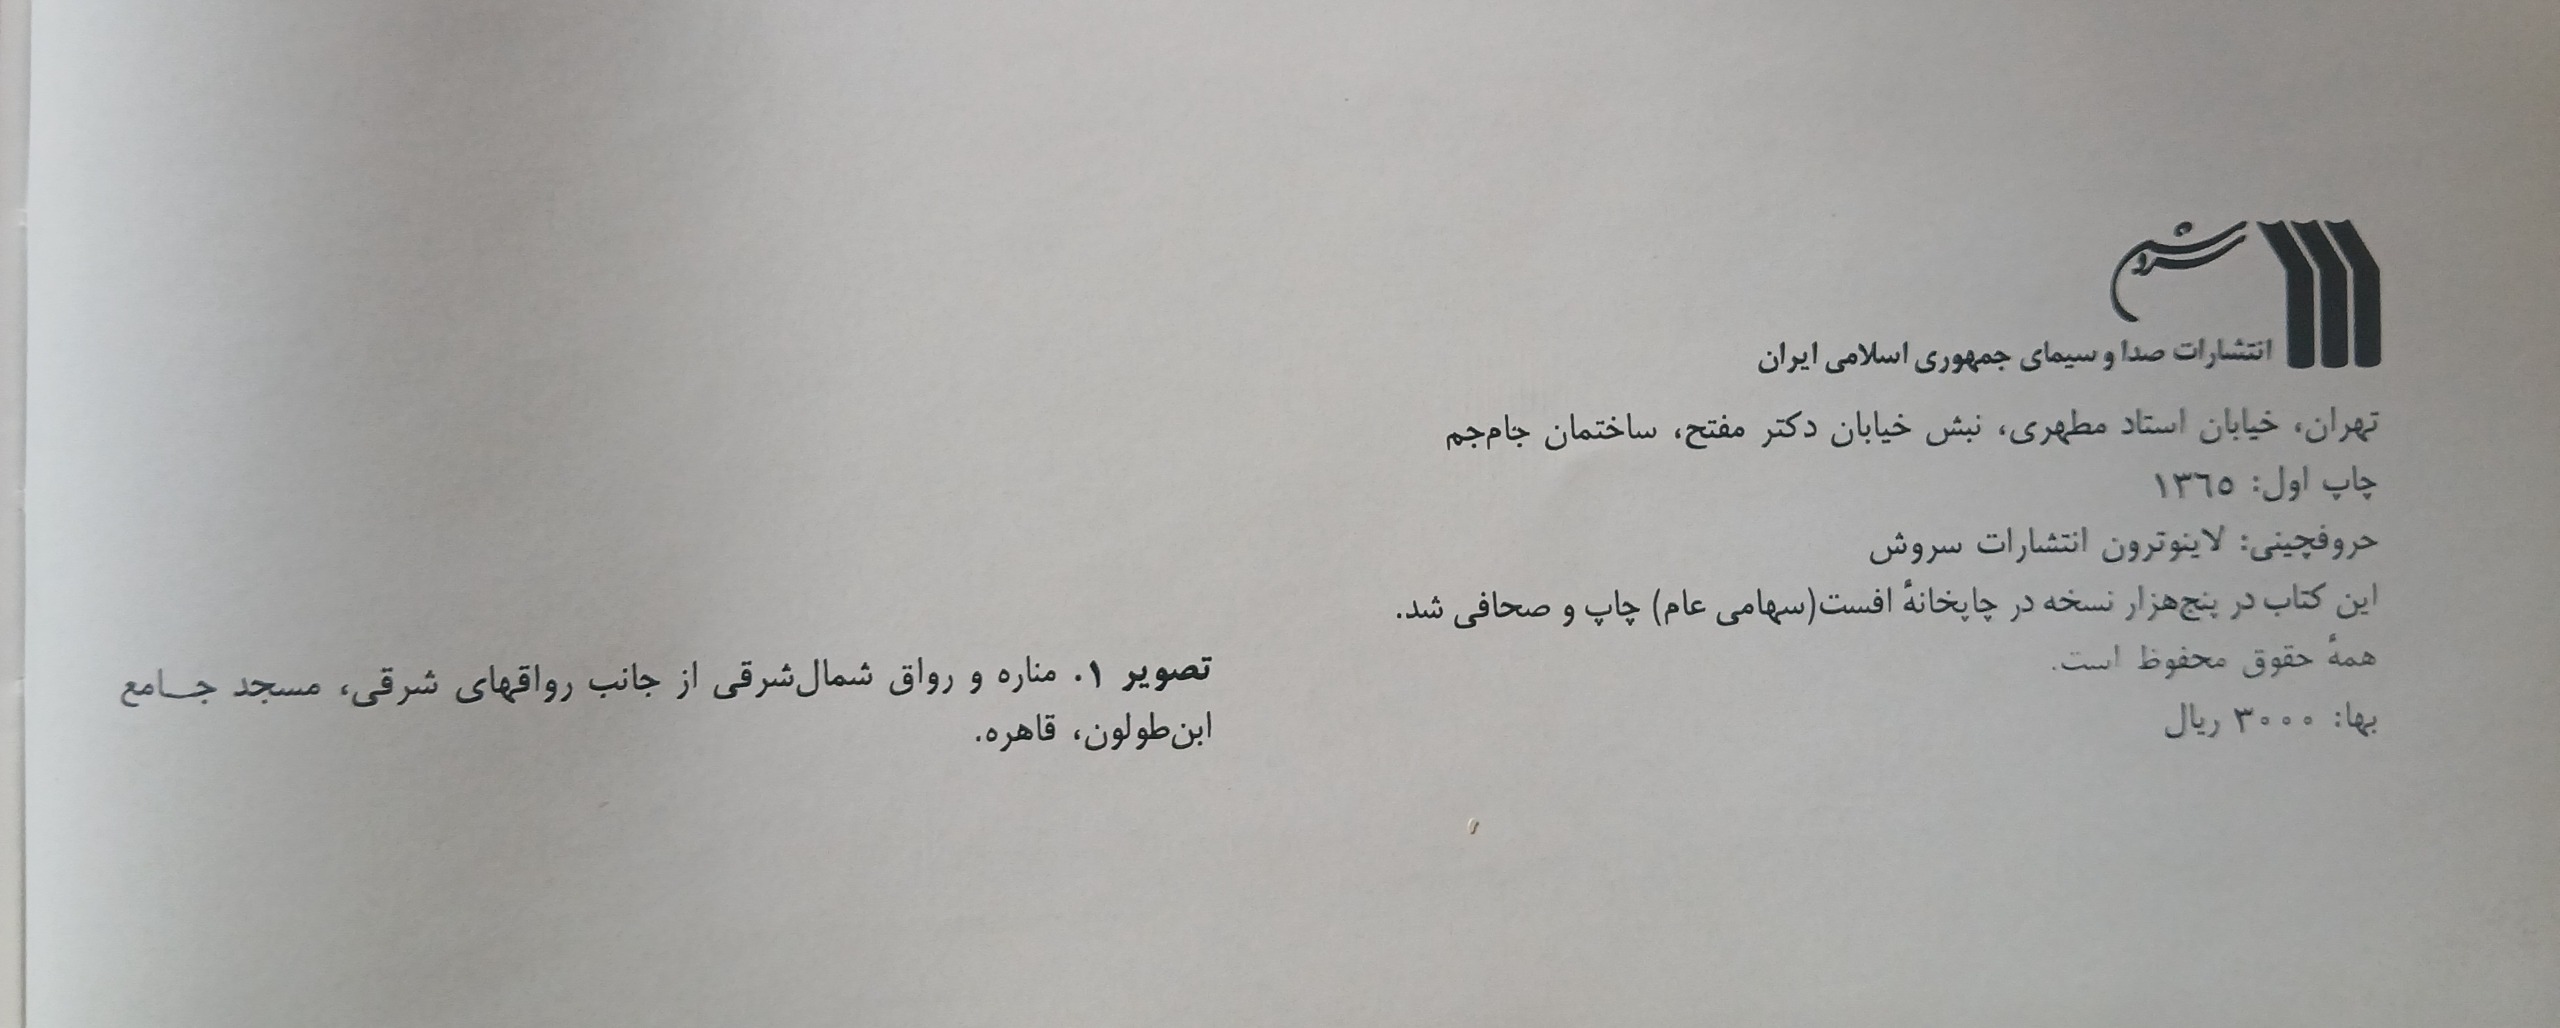 سروش
انتشارات صدا و سیمای جمهوری اسلامی ایران
تهران، خیابان استاد مطهری، نبش خیابان دکتر مفتح، ساختمان جام‌جم
چاپ اول: ۱۳٦۵
حروفچینی: لاینوترون انتشارات سروش
این کتاب در پنج‌هزار نسخه در چاپخانهٔ افست(سهامی عام) چاپ و صحافی شد.
همهٔ حقوق محفوظ است.
بها: ۳۰۰۰ ریال
تصویر ۱. مناره و رواق شمال‌شرقی از جانب رواقهای شرقی، مسجد جـامع
ابن‌طولون، قاهره.